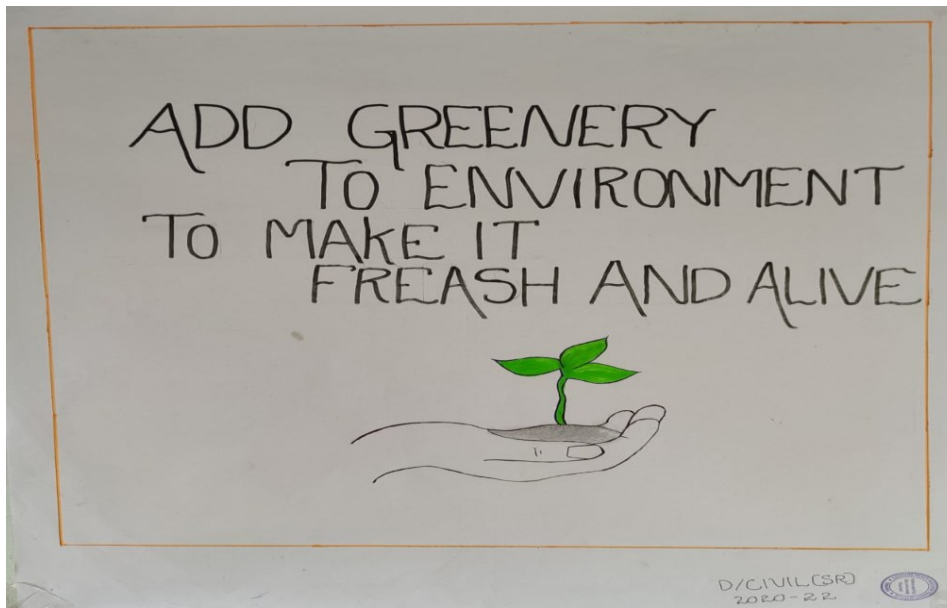 ADD GREENERY
TO ENVIRONMENT
TO MAKE IT
FREASH AND ALIVE
D/CIVIL(SR)
2020-22